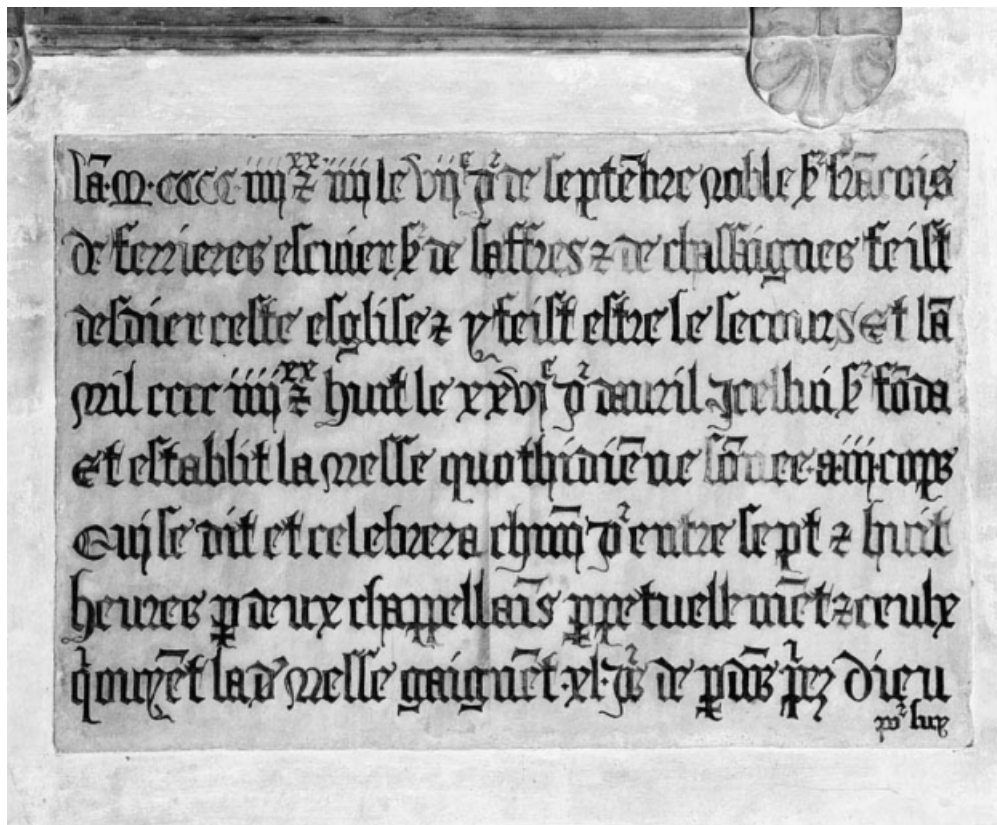 lā · M · cccc · iiii xx z iiii le viie ior de septēbre noble sr frācois
de ferrieres escuier sr de saffres z de chassaignes feist
desdier ceste esglise z y feist estre le secours Et lā
Mil cccc iiii xx z huit le xxvie ior dauril Icellui sr fōda
Et establit la messe quothidiēne sōnee a · iii · cops
Qui se dit et celebrera chūn ior entre sept z huit
heures p deux chappellaīs ppetuellemēt z ceulx
q ouyrēt lad messe gaignēt · xl · iors de pdōs priez Dieu
por luy